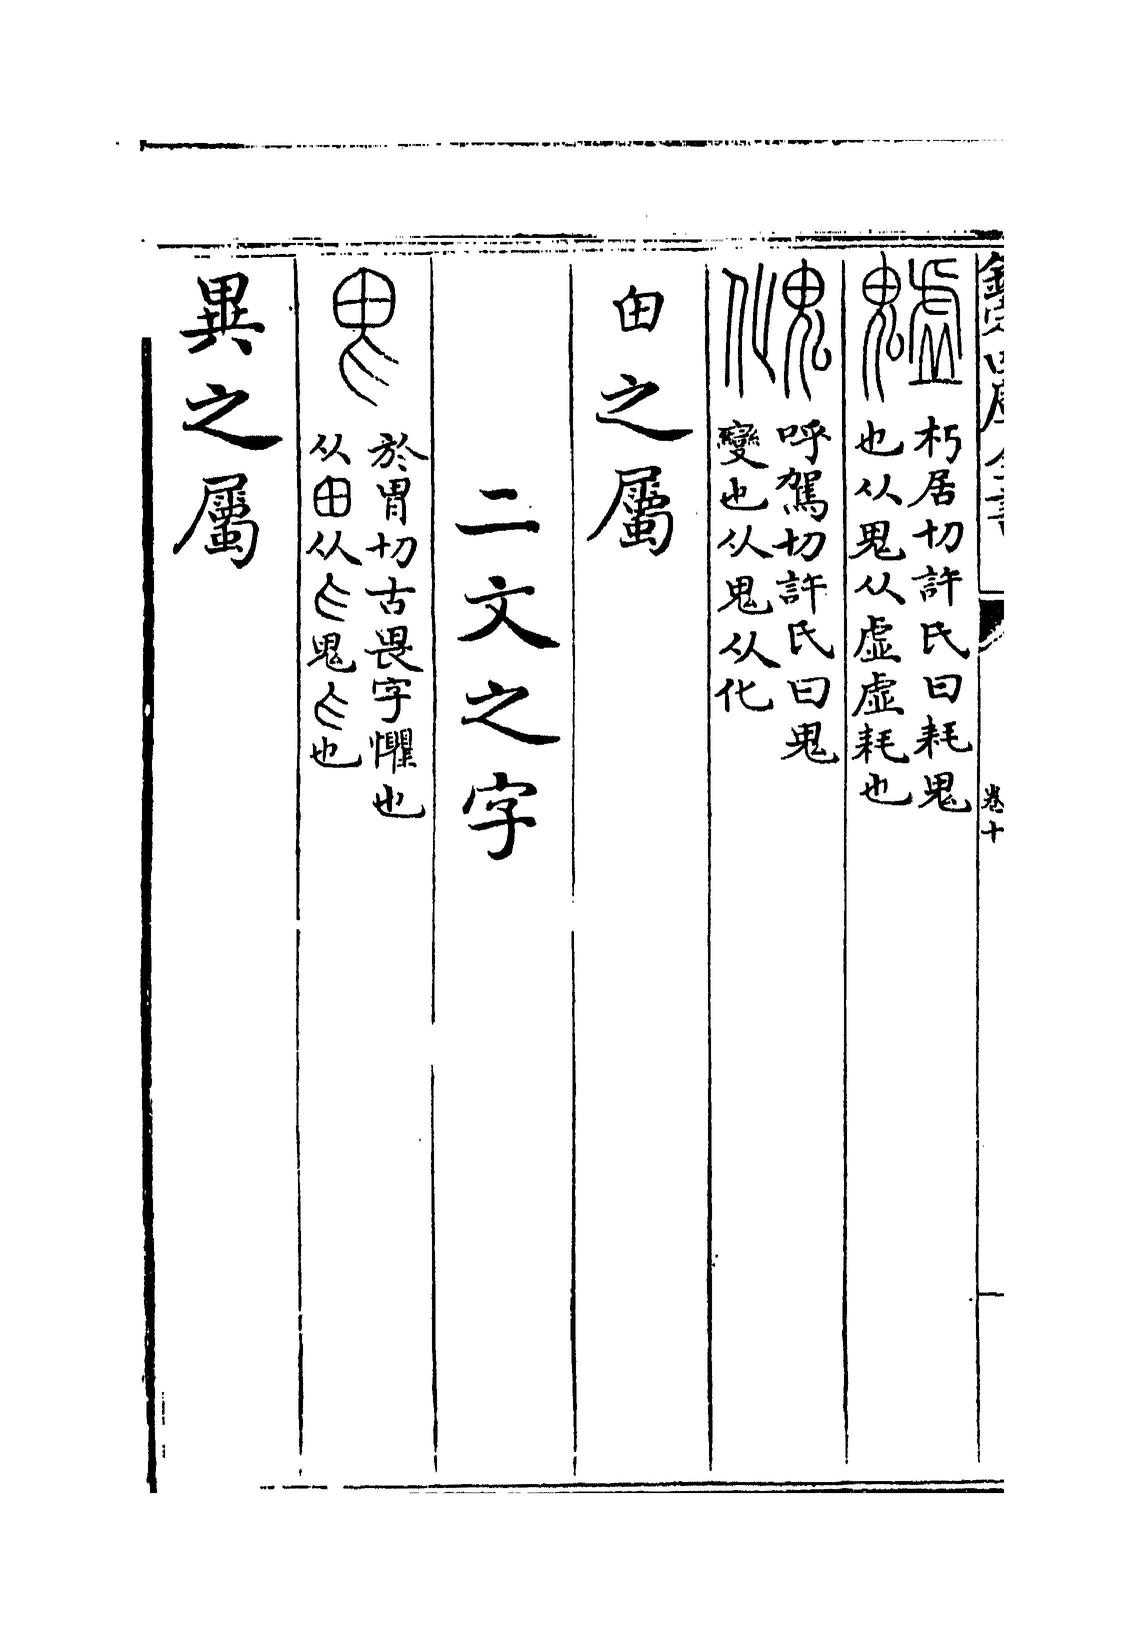 欽定四庫全書
卷十
魖
朽居切許氏曰耗鬼
也从鬼从虛虛耗也
魤
呼駕切許氏曰鬼
變也从鬼从化
甶之屬
二文之字
於胃切古畏字懼也
从甶从𠂊鬼𠂊也
異之屬